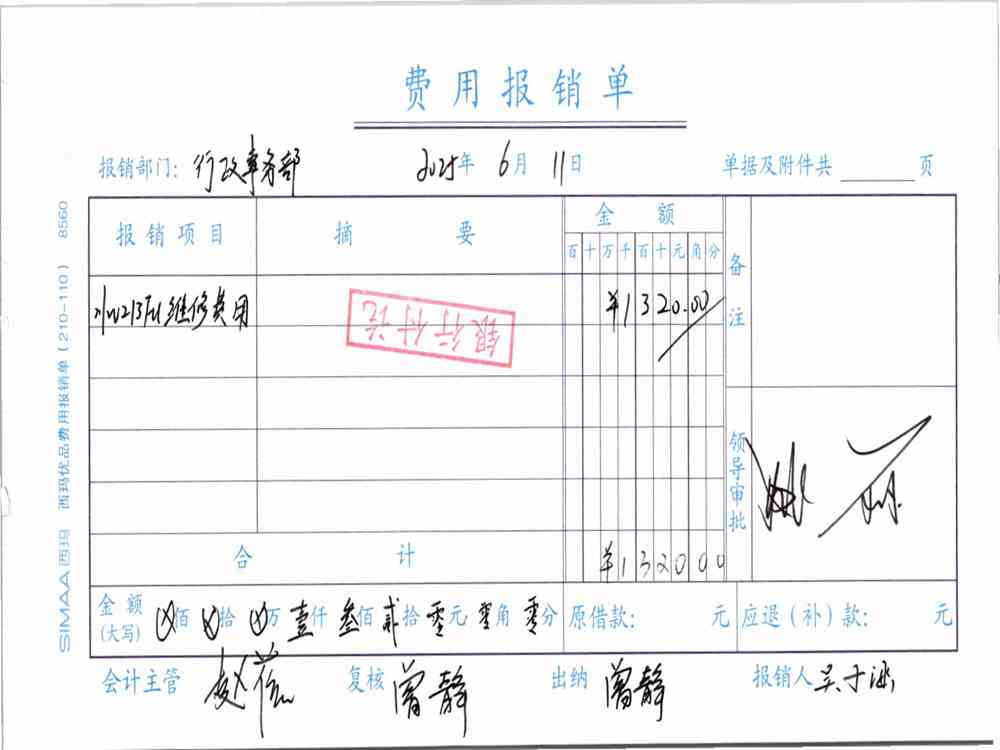 费用报销单
报销部门: 行政事务部 2025年 6月 11日 单据及附件共 页
报销项目 摘要 金额 备注
百十万千百十元角分
维修费用 ¥1320.00
银行付讫
领导审批
合计 ¥132000
金额(大写) ⊗佰 ⊗拾 ⊗万 壹仟 叁佰 贰拾 零元 零角 零分 原借款: 元 应退(补)款: 元
会计主管 复核 曾静 出纳 曾静 报销人
SIMAA西玛 西玛优品费用报销单(210-110) 8560